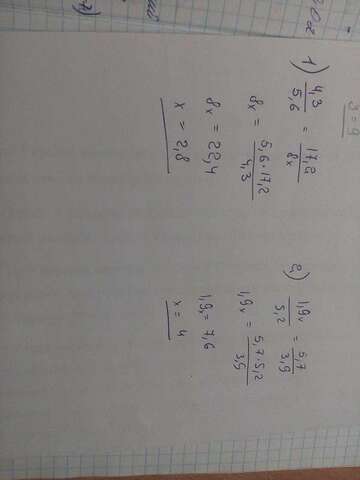 3 = 9
1) 4,3/5,6 = 17,2/8x
8x = 5,6·17,2/4,3
8x = 22,4
x = 2,8
2) 1,9x/5,2 = 5,7/3,9
1,9x = 5,7·5,2/3,9
1,9x = 7,6
x = 4